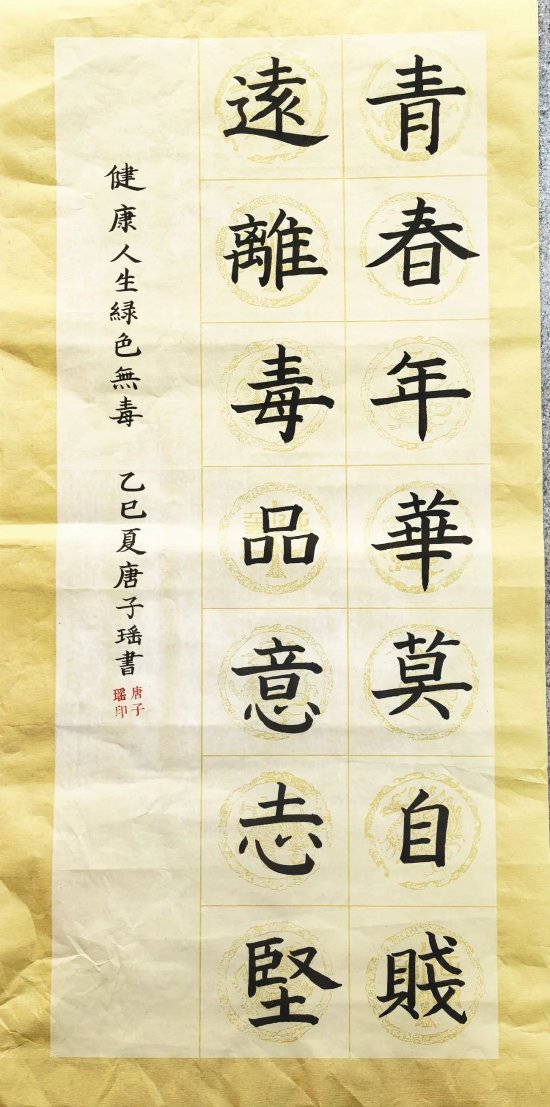 青春年華莫自賤
遠離毒品意志堅
健康人生綠色無毒 乙巳夏唐子瑶書
唐子瑶印